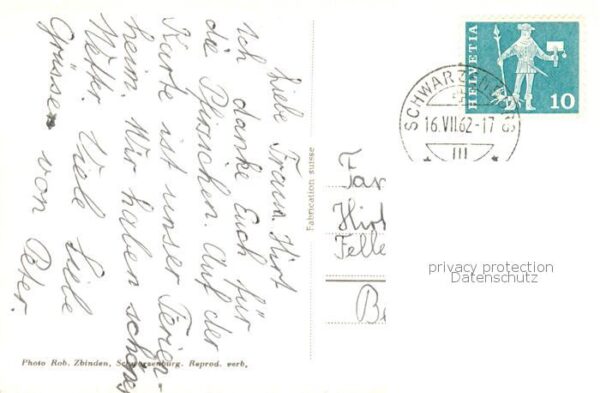 Liebe Fram. Hirt
ich danke Euch für
die Pfirsichen. Auf der
Karte ist unser Ferien-
heim. Wir haben schönes
Wetter. Viele liebe
Grüsse von Peter.
Photo Rob. Zbinden, Schwarzenburg. Reprod. verb.
Fabrication suisse
HELVETIA
10
SCHWARZENBURG
16.VII.62-17
III
Fam
Hirt
Felle
Be
privacy protection
Datenschutz